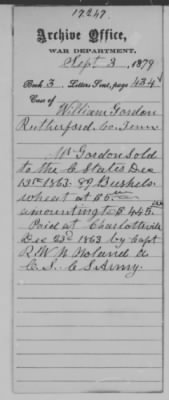 17247.
Archive Office,
WAR DEPARTMENT,
Sept 3, 1879
Book 3. Letters Sent, page 434
Case of
William Gordon
Rutherford. Co. Tenn
Mr Gordon sold
to the C States Dec
13th 1863. 89 Bushels
wheat at $5.00
amounting to $445.00
Paid at Charlottsville
Dec 23d 1863 by Capt
R. W. N. Noland a
C. S. C S Army.